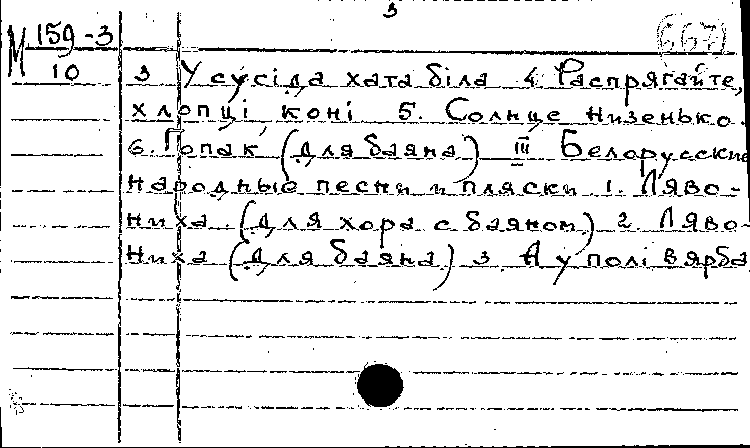 3
М 159-3
10
(667)
3 У сусіда хата біла 4 Распрягайте,
хлопці, коні 5. Солнце низенько.
6. Гопак (для баяна) III Белорусские
народные песни и пляски 1. Ляво-
ниха. (для хора с баяном) 2. Ляво-
ниха (для баяна) 3. А у полі вярба